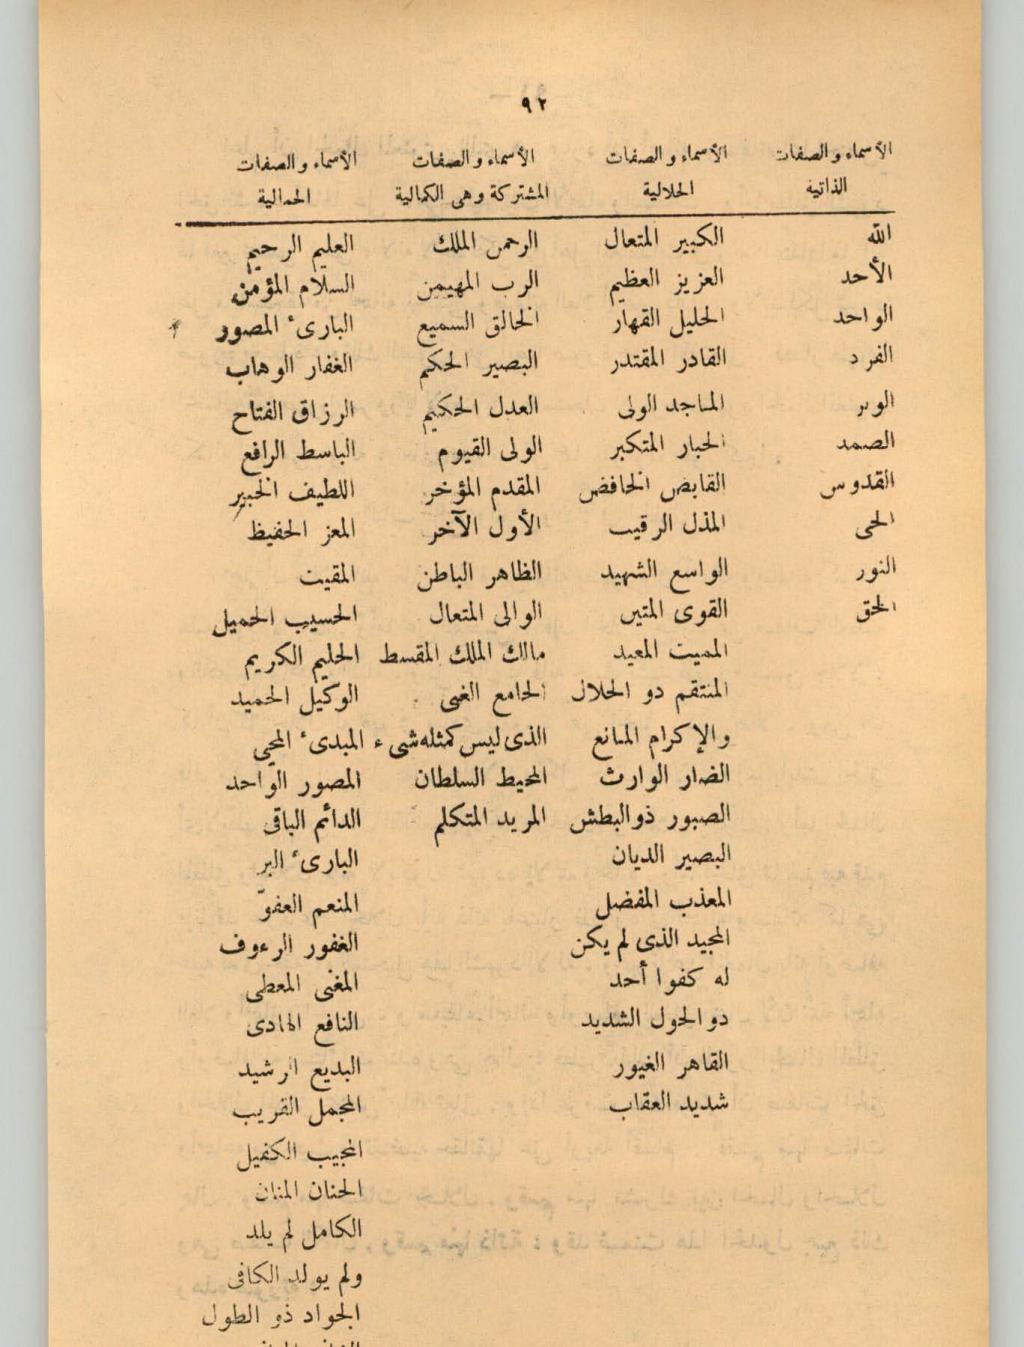 ٩٢
الأسماء والصفات الأسماء والصفات الأسماء والصفات الأسماء والصفات
الذاتية الجلالية المشتركة وهى الكمالية الجمالية
الله الكبير المتعال الرحمن الملك العليم الرحيم
الأحد العزيز العظيم الرب المهيمن السلام المؤمن
الواحد الجليل القهار الخالق السميع البارىء المصور
الفرد القادر المقتدر البصير الحكم الغفار الوهاب
الوتر الماجد الولى العدل الحكيم الرزاق الفتاح
الصمد الجبار المتكبر الولى القيوم الباسط الرافع
القدوس القابض الخافض المقدم المؤخر اللطيف الخبير
الحى المذل الرقيب الأول الآخر المعز الحفيظ
النور الواسع الشهيد الظاهر الباطن المقيت
الحق القوى المتين الوالى المتعال الحسيب الجميل
المميت المعيد مالك الملك المقسط الحليم الكريم
المنتقم ذو الجلال الجامع الغنى الوكيل الحميد
والإكرام المانع الذى ليس كمثله شىء المبدىء المحيى
الضار الوارث المحيط السلطان المصور الواحد
الصبور ذوالبطش المريد المتكلم الدائم الباقى
البصير الديان البارىء البر
المعذب المفضل المنعم العفوّ
المجيد الذى لم يكن الغفور الرءوف
له كفوا أحد المغنى المعطى
ذو الحول الشديد النافع الهادى
القاهر الغيور البديع الرشيد
شديد العقاب المجمل القريب
المجيب الكفيل
الحنان المنان
الكامل لم يلد
ولم يولد الكافى
الجواد ذو الطول